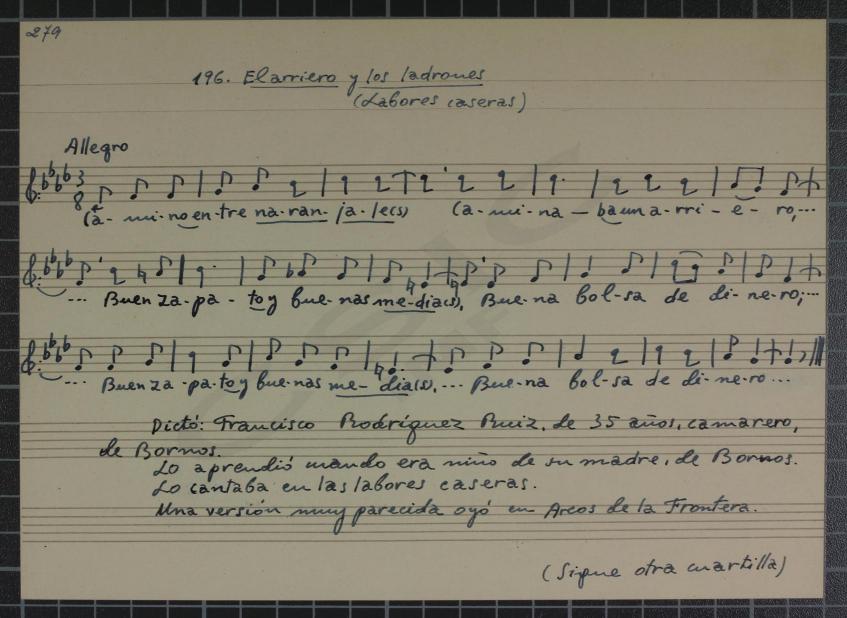 279
196. El arriero y los ladrones
(Labores caseras)
Allegro
3
8
Ca- mi-no en-tre na-ran- ja-le(s) Ca-mi-na - ba un a-rri-e-ro,...
... Buen za-pa-to y bue-nas me-dia(s), Bue-na bol-sa de di-ne-ro;...
... Buen za-pa-to y bue-nas me-dia(s),... Bue-na bol-sa de di-ne-ro...
Dictó: Francisco Rodríguez Ruiz, de 35 años, camarero,
de Bornos.
Lo aprendió cuando era niño de su madre, de Bornos.
Lo cantaba en las labores caseras.
Una versión muy parecida oyó en Arcos de la Frontera.
(Sigue otra cuartilla)